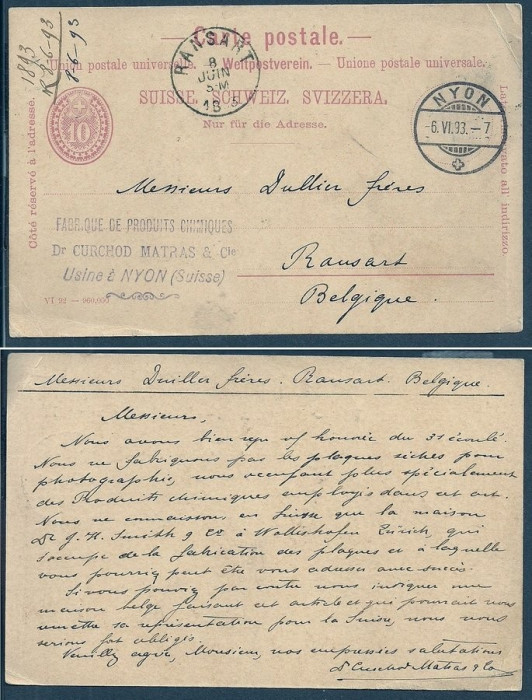 Carte postale.
Union postale universelle. Weltpostverein. Unione postale universale.
SUISSE. SCHWEIZ. SVIZZERA.
Nur für die Adresse.
Côté réservé à l'adresse.
Lato riservato all' indirizzo.
1893
R 8-6-93
8-6-93
10
RANSART
8
JUIN
NYON
-6.VI.93.-7
Messieurs Dullier frères
Ransart
Belgique.
FABRIQUE DE PRODUITS CHIMIQUES
Dr CURCHOD MATRAS & Cie
Usine à NYON (Suisse)
VI 92 — 960,000
Messieurs Duiller frères. Ransart. Belgique.
Messieurs,
Nous avons bien reçu v/ honorée du 31 écoulé.
Nous ne fabriquons pas les plaques sèches pour
photographie, nous occupant plus spécialement
des Produits chimiques employés dans cet art.
Nous ne connaissons en Suisse que la maison
Dr J. H. Smith & Co à Wollishofen Zürich, qui
s'occupe de la fabrication des plaques et à laquelle
vous pourriez peut être vous adresser avec succès.
Si vous pouviez par contre nous indiquer une
maison belge faisant cet article et qui pourrait nous
remettre sa représentation pour la Suisse, nous vous
serions fort obligés.
Veuillez agréer, Messieurs, nos empressées salutations
Dr Curchod Matras & Co